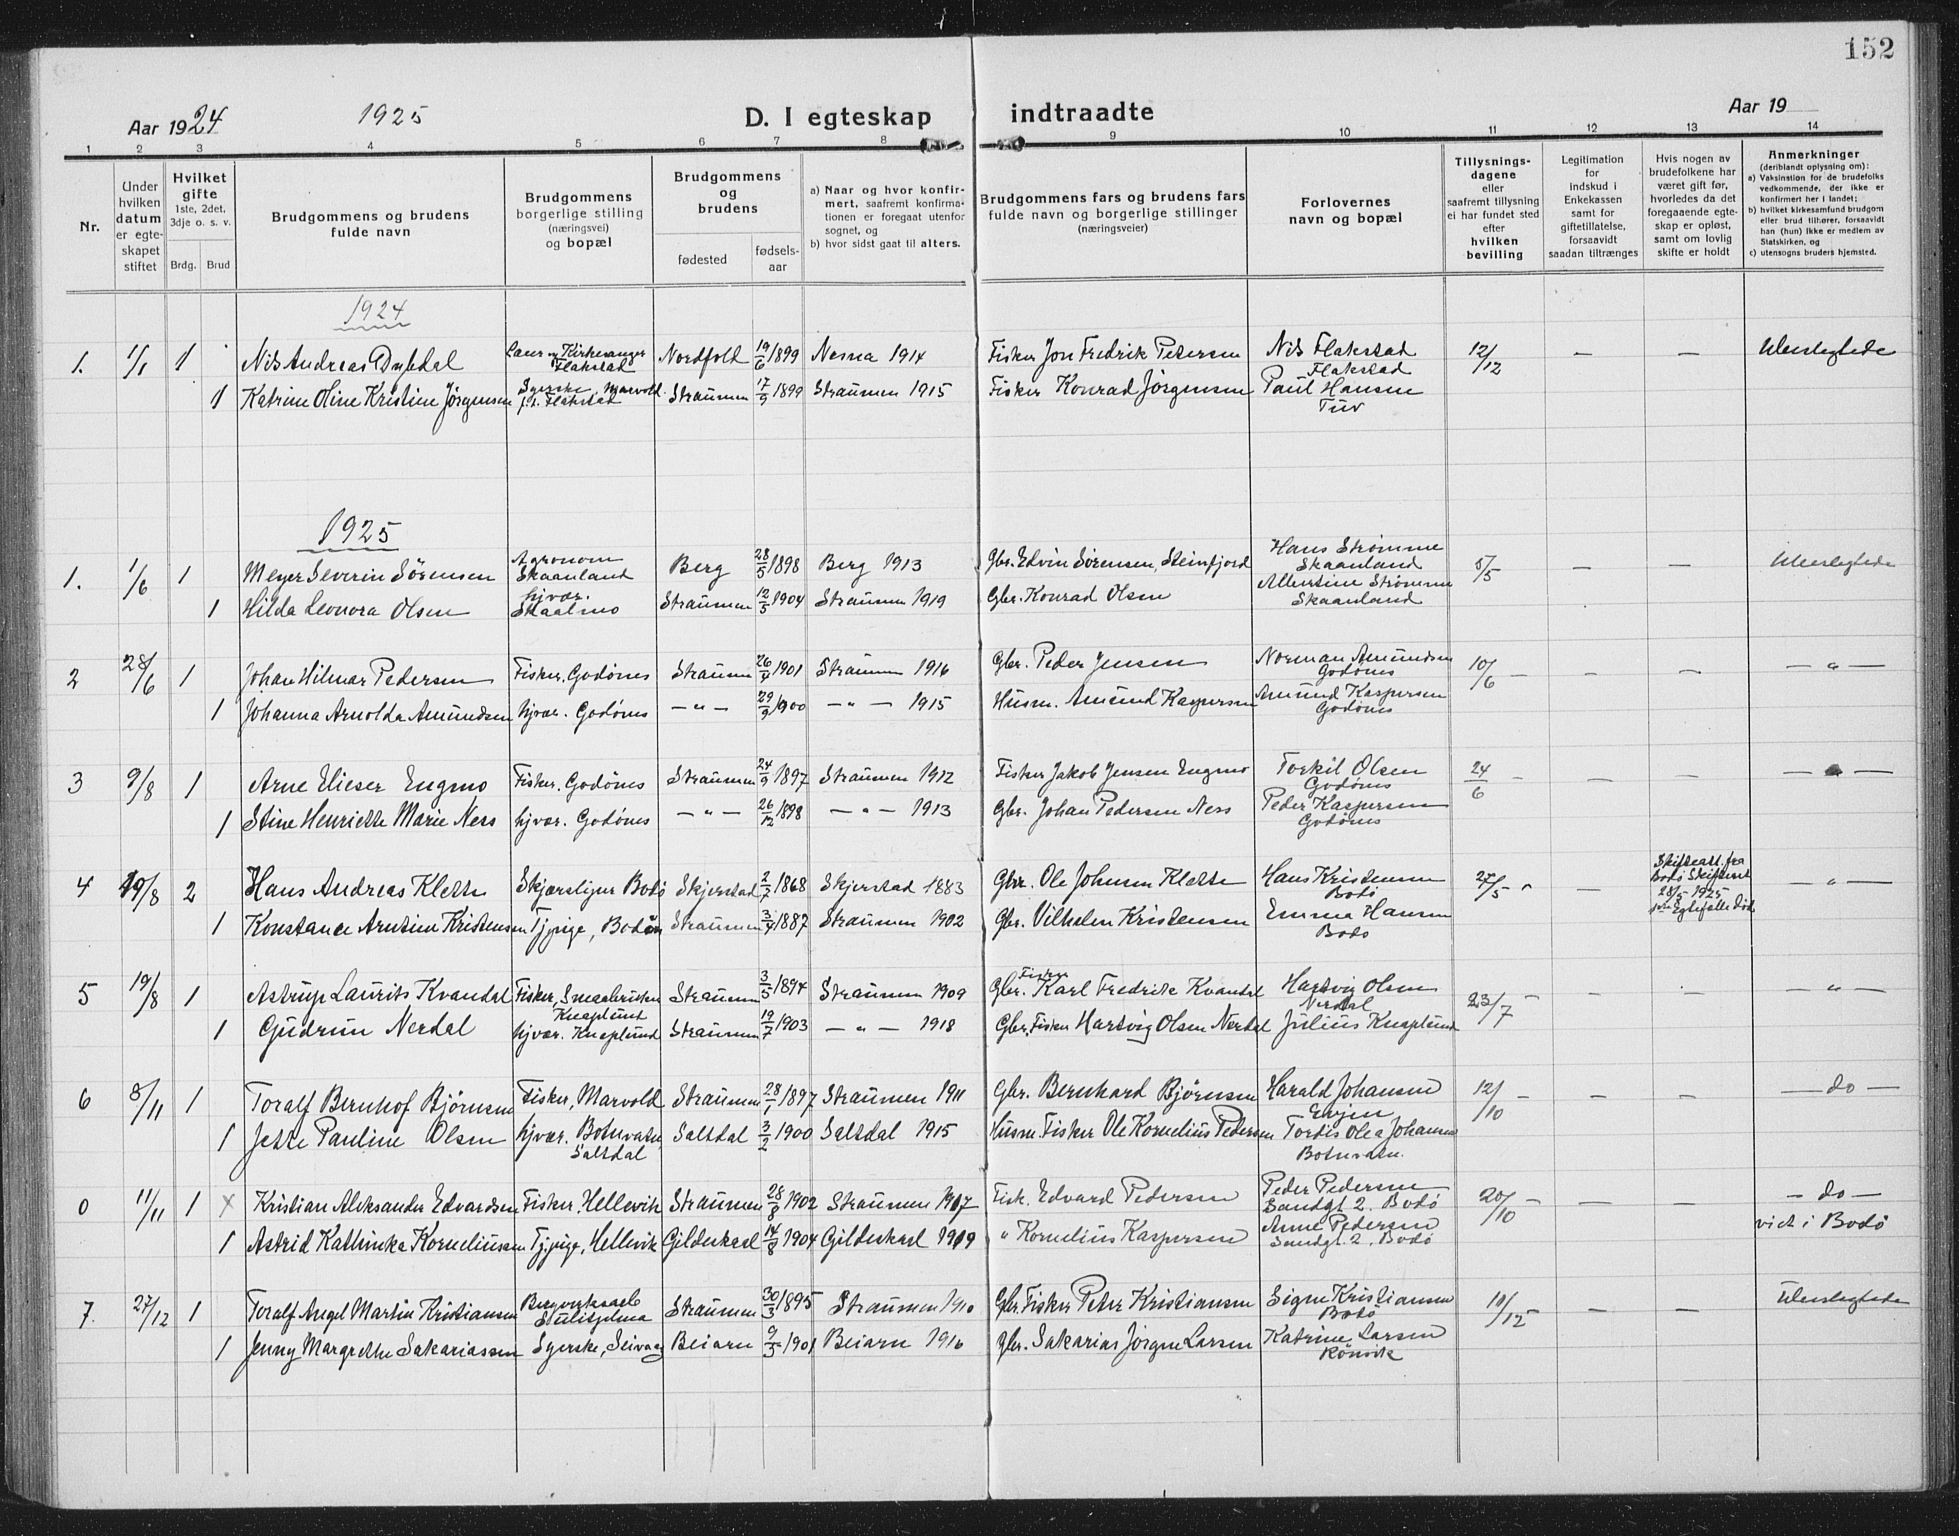 152
Aar 1924
1925
D. I egteskap indtraadte
Aar 19
1 2 3 4 5 6 7 8 9 10 11 12 13 14
Nr.
Under hvilken datum er egte-skapet stiftet
Hvilket gifte
1ste, 2det, 3dje o. s. v.
Brdg. Brud
Brudgommens og brudens fulde navn
Brudgommens borgerlige stilling (næringsvei) og bopæl
Brudgommens og brudens
fødested
fødsels-aar
a) Naar og hvor konfir-mert, saafremt konfirma-tionen er foregaat utenfor sognet, og
b) hvor sidst gaat til alters.
Brudgommens fars og brudens fars fulde navn og borgerlige stillinger (næringsveier)
Forlovernes navn og bopæl
Tillysnings-dagene eller saafremt tillysning ei har fundet sted efter hvilken bevilling
Legitimation for indskud i Enkekassen samt for giftetillatelse, forsaavidt saadan tiltrænges
Hvis nogen av brudefolkene har været gift før, hvorledes da det foregaaende egte-skap er opløst, samt om lovlig skifte er holdt
Anmerkninger (deriblandt oplysning om):
a) Vaksination for de brudefolks vedkommende, der ikke er konfirmert her i landet;
b) hvilket kirkesamfund brudgom eller brud tilhører, forsaavidt han (hun) ikke er medlem av Statskirken, og
c) utensogns bruders hjemsted.
1924
1. 1/1 1 Nils Andreas Dybdal Lærer og Kirkesanger Flakstad Nordfold 19/6 1899 Nesna 1914 Fisker Jon Fredrik Petersen Nils Flakstad Flakstad 12/12 — — Uberslegtede
1 Katrine Oline Kristine Jørgensen Syerske, Marvold. Flakstad Straumen 17/9 1899 Straumen 1915 Fisker Konrad Jørgensen Paul Hansen Tuv
1925
1. 1/6 1 Meyer Severin Sørensen Agronom Skaanland Berg 28/5 1898 Berg 1913 Gbr. Edvin Sørensen, Steinfjord Hans Strømme Skaanland 5/5 — —
1 Hilda Leonora Olsen hjvær. Skaalmo Straumen 12/5 1904 Straumen 1919 Gbr. Konrad Olsen Albertine Strømme Skaanland
2 28/6 1 Johan Hilmar Pedersen Fisker, Godønes Straumen 26/4 1901 Straumen 1916 Gbr. Peder Jensen Norman Amundsen Godønes 10/6 — — — — " —
1 Johanna Arnolda Amundsen hjvær. Godønes — " — 29/9 1900 — " — 1915 Husm. Amund Kaspersen Amund Kaspersen Godønes
3 9/8 1 Arne Elieser Engmo Fisker, Godønes Straumen 24/9 1897 Straumen 1912 Fisker Jakob Jensen Engmo Torkil Olsen Godønes 24/6 — — — — " —
1 Stine Henriette Marie Ness hjvær. Godønes — " — 26/12 1898 — " — 1913 Gbr. Johan Pedersen Ness Peder Kaspersen Godønes
4 19/8 2 Hans Andreas Klette Bodø Skjerstad 2/7 1868 Skjerstad 1883 Gbr. Ole Johnsen Klette Hans Kristensen Bodø 25/5 " — Skifteatt. fra Bodø Skifteret 28/5 1925 Egtefelle død — " —
1 Konstance Arntine Kristensen Tjpige, Bodø Straumen 3/4 1887 Straumen 1902 Gbr. Vilhelm Kristensen Emma Hansen Bodø
5 19/8 1 Astrup Laurits Kvandal Fisker, Smaabruker Knaplund Straumen 3/5 1894 Straumen 1909 Gbr. Fisker Karl Fredrik Kvandal Hartvig Olsen Nerdal 23/7 — — — — " —
1 Gudrun Nerdal hjvær. Knaplund Straumen 19/7 1903 — " — 1918 Gbr. Fisker Hartvig Olsen Nerdal Julius Knaplund
6 8/11 1 Toralf Bernhof Bjørnsen Fisker, Marvold Straumen 28/1 1897 Straumen 1911 Gbr. Bernhard Bjørnsen Harald Johansen Evjen 12/10 — — — — do —
1 Jette Pauline Olsen hjvær. Botnvatn, Saltdal Saltdal 3/2 1900 Saltdal 1915 Husm. Fisker Ole Kornelius Pedersen Tordis Olea Johansen Botnvatn.
0 11/11 1 x Kristian Aleksander Edvardsen Fisker, Hellevik Straumen 28/8 1902 Straumen 1917 Fisk. Edvard Pedersen Peder Pedersen Sandgt 2. Bodø 20/10 — — — — do —
1 Astrid Kathinka Korneliussen Tjpige, Hellevik Gildeskaal 14/8 1904 Gildeskaal 1919 " Kornelius Kaspersen Anne Pedersen Sandgt. 2. Bodø viet i Bodø
7. 27/12 1 Toralf Angel Martin Kristiansen Sulitjelma Straumen 30/3 1895 Straumen 1910 Gbr. Fisker Peter Kristiansen Signe Kristiansen Bodø 10/12 — — —
1 Jenny Margrethe Sakariassen Syerske, Seivaag Beiarn 9/3 1901 Beiarn 1916 Gbr. Sakarias Jørgen Larsen Katrine Larsen Rønvik